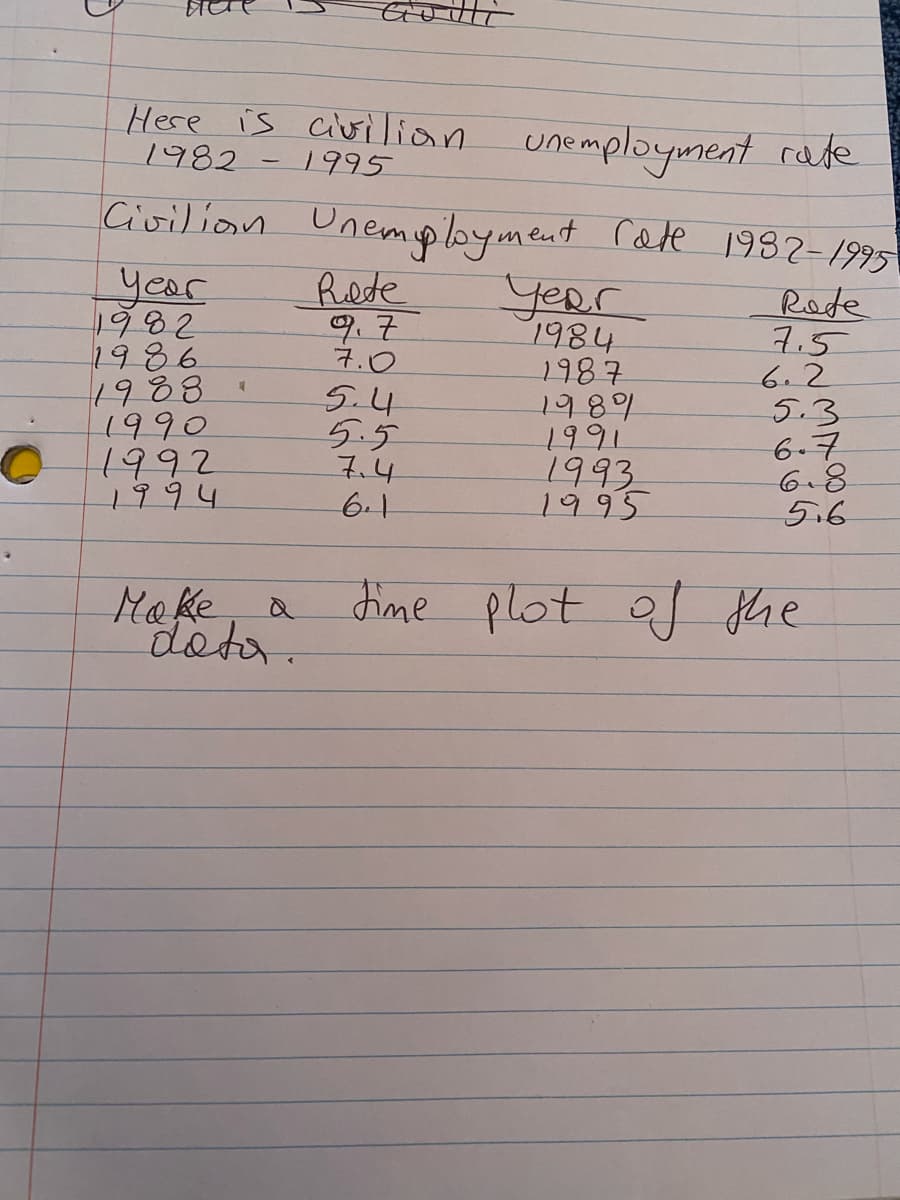 Here is civilian unemployment rate
1982 - 1995
Civilian Unemployment rate 1982-1995
Year Rate Year Rate
1982 9.7 1984 7.5
1986 7.0 1987 6.2
1988 5.4 1989 5.3
1990 5.5 1991 6.7
1992 7.4 1993 6.8
1994 6.1 1995 5.6
Make a time plot of the
data.